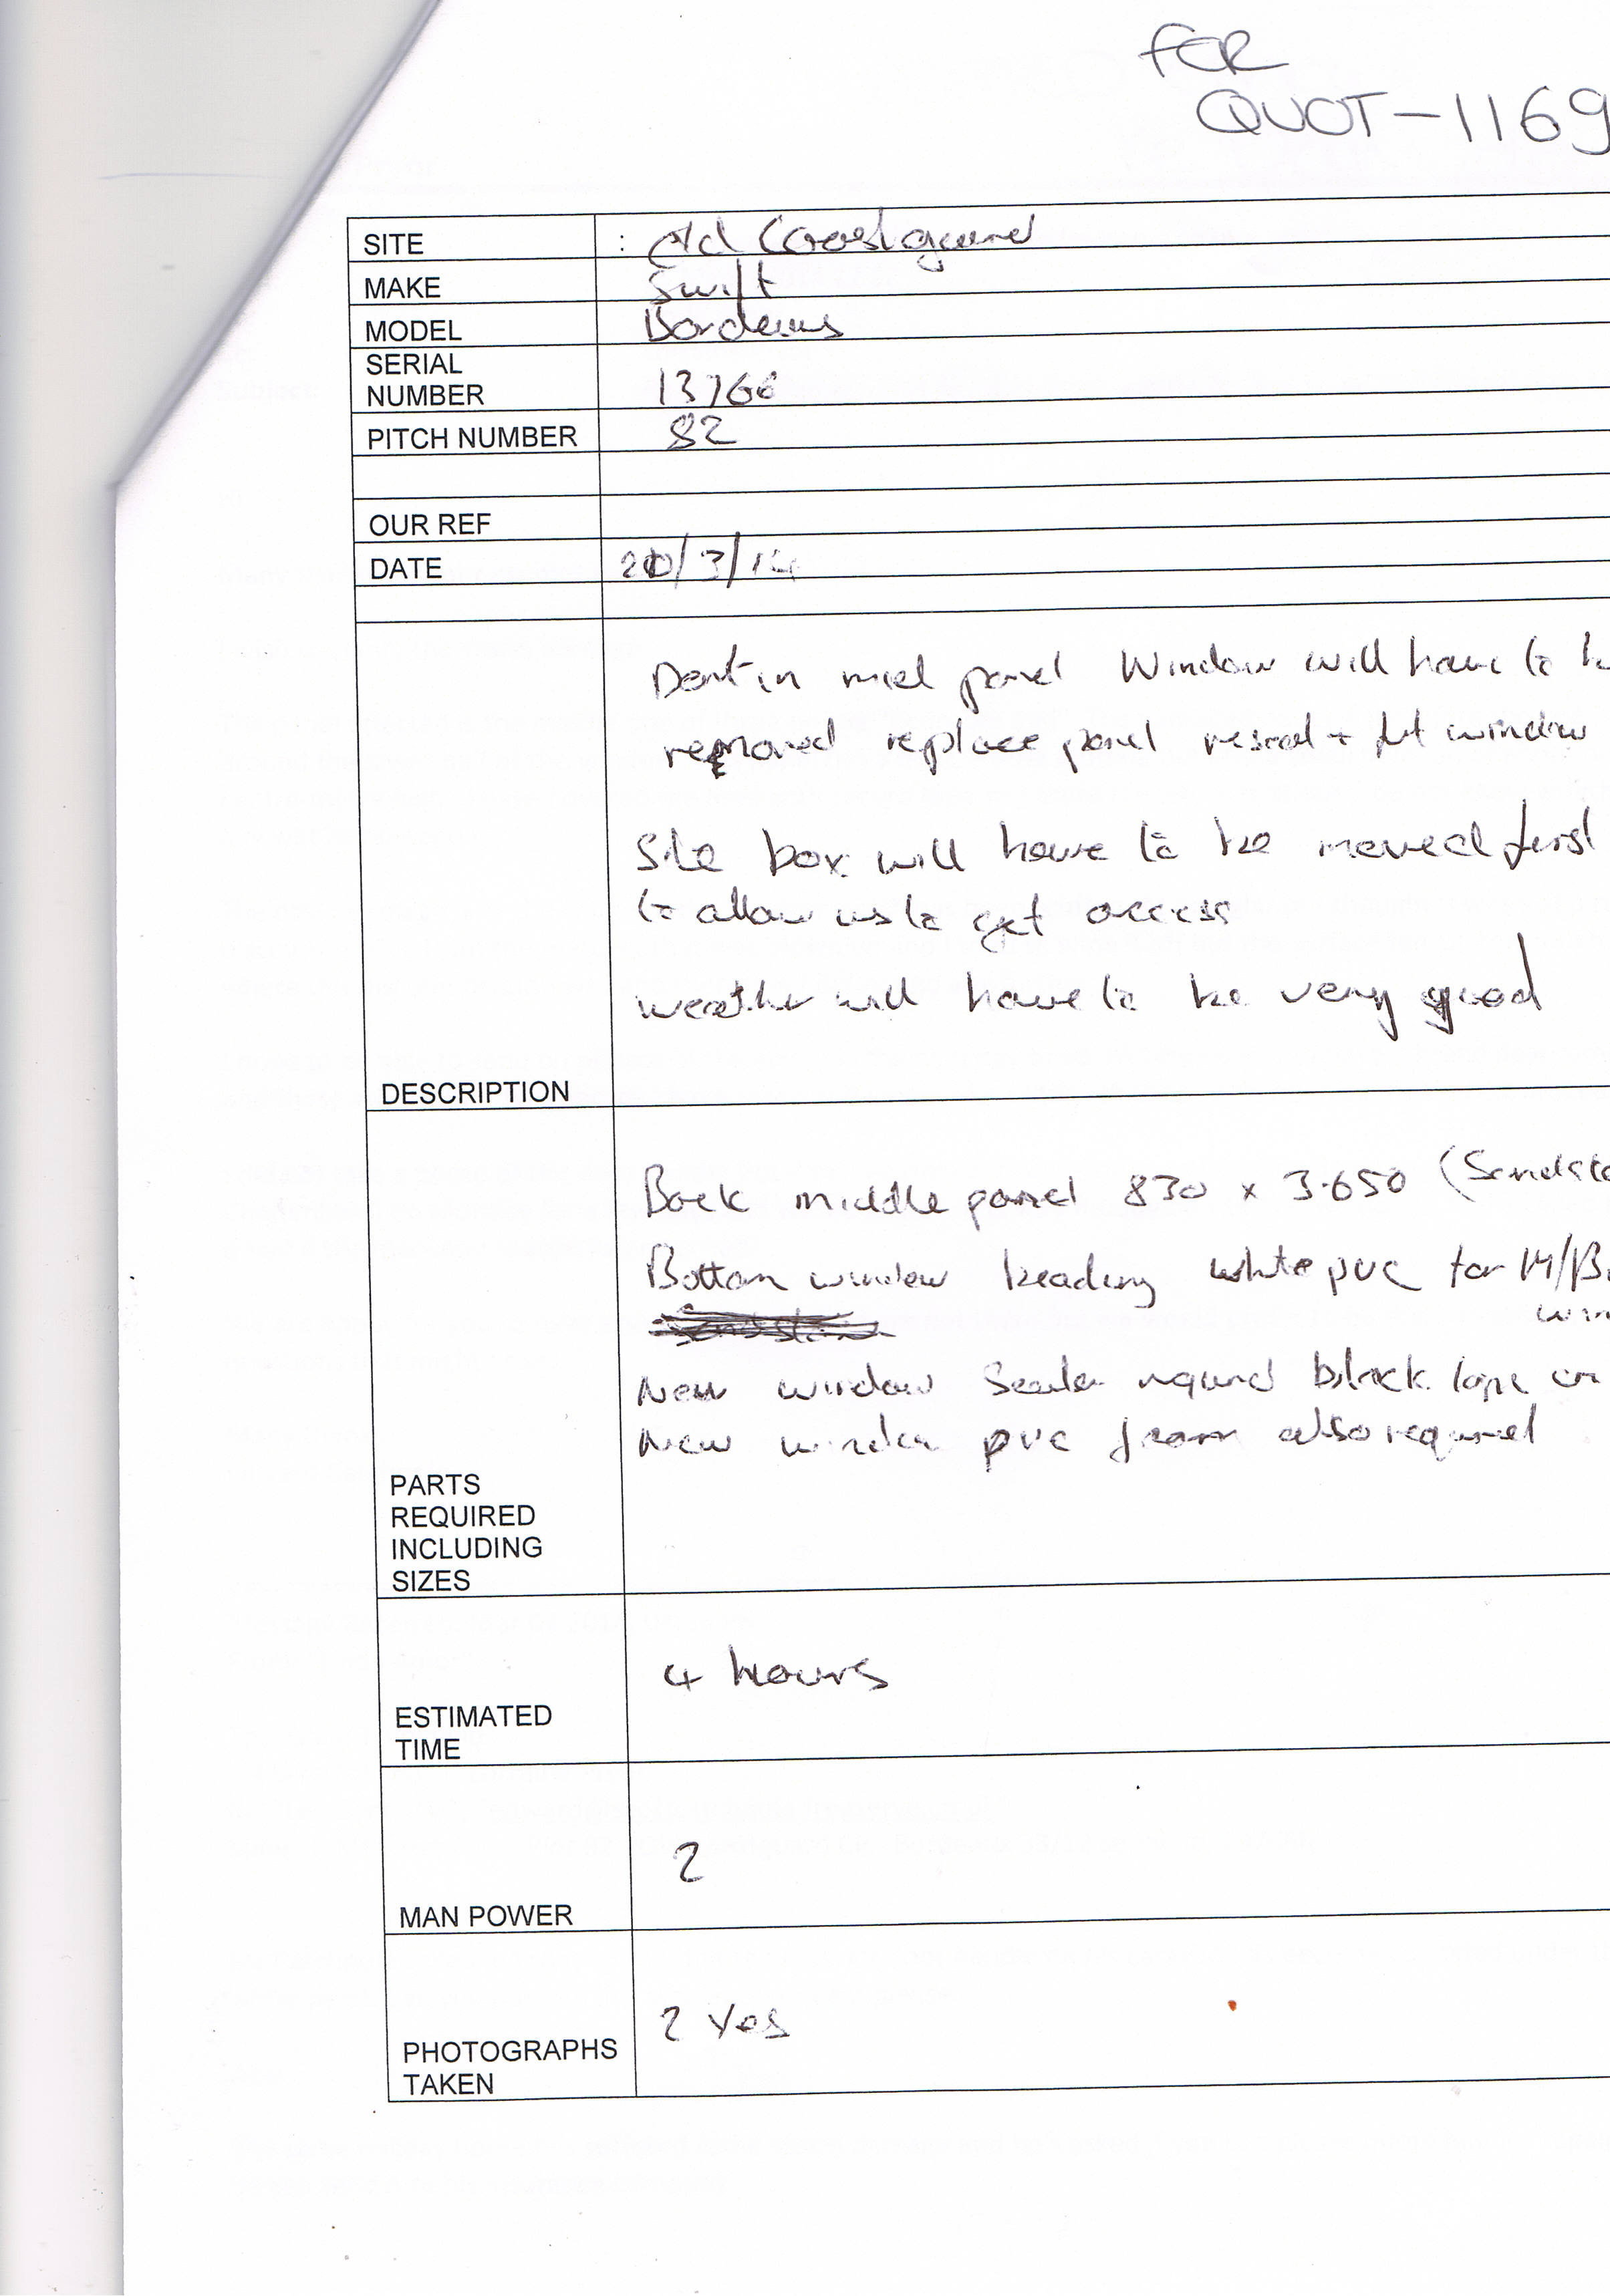 FOR
QUOT-1169
SITE : Old Coastguard
MAKE Swift
MODEL Bordeaus
SERIAL
NUMBER 13766
PITCH NUMBER 82
OUR REF
DATE 20/3/14
Dent in mid panel Window will have to
removed replace panel reseal + fit window
Site box will have to be moved first
to allow us to get access
weather will have to be very good
DESCRIPTION
Back middle panel 830 x 3.650 (Sandsto
Bottom window beading white pvc for M/B
win
New window Sealer required black tape on
New window pvc foam also required
PARTS
REQUIRED
INCLUDING
SIZES
4 hours
ESTIMATED
TIME
2
MAN POWER
2 Yes
PHOTOGRAPHS
TAKEN